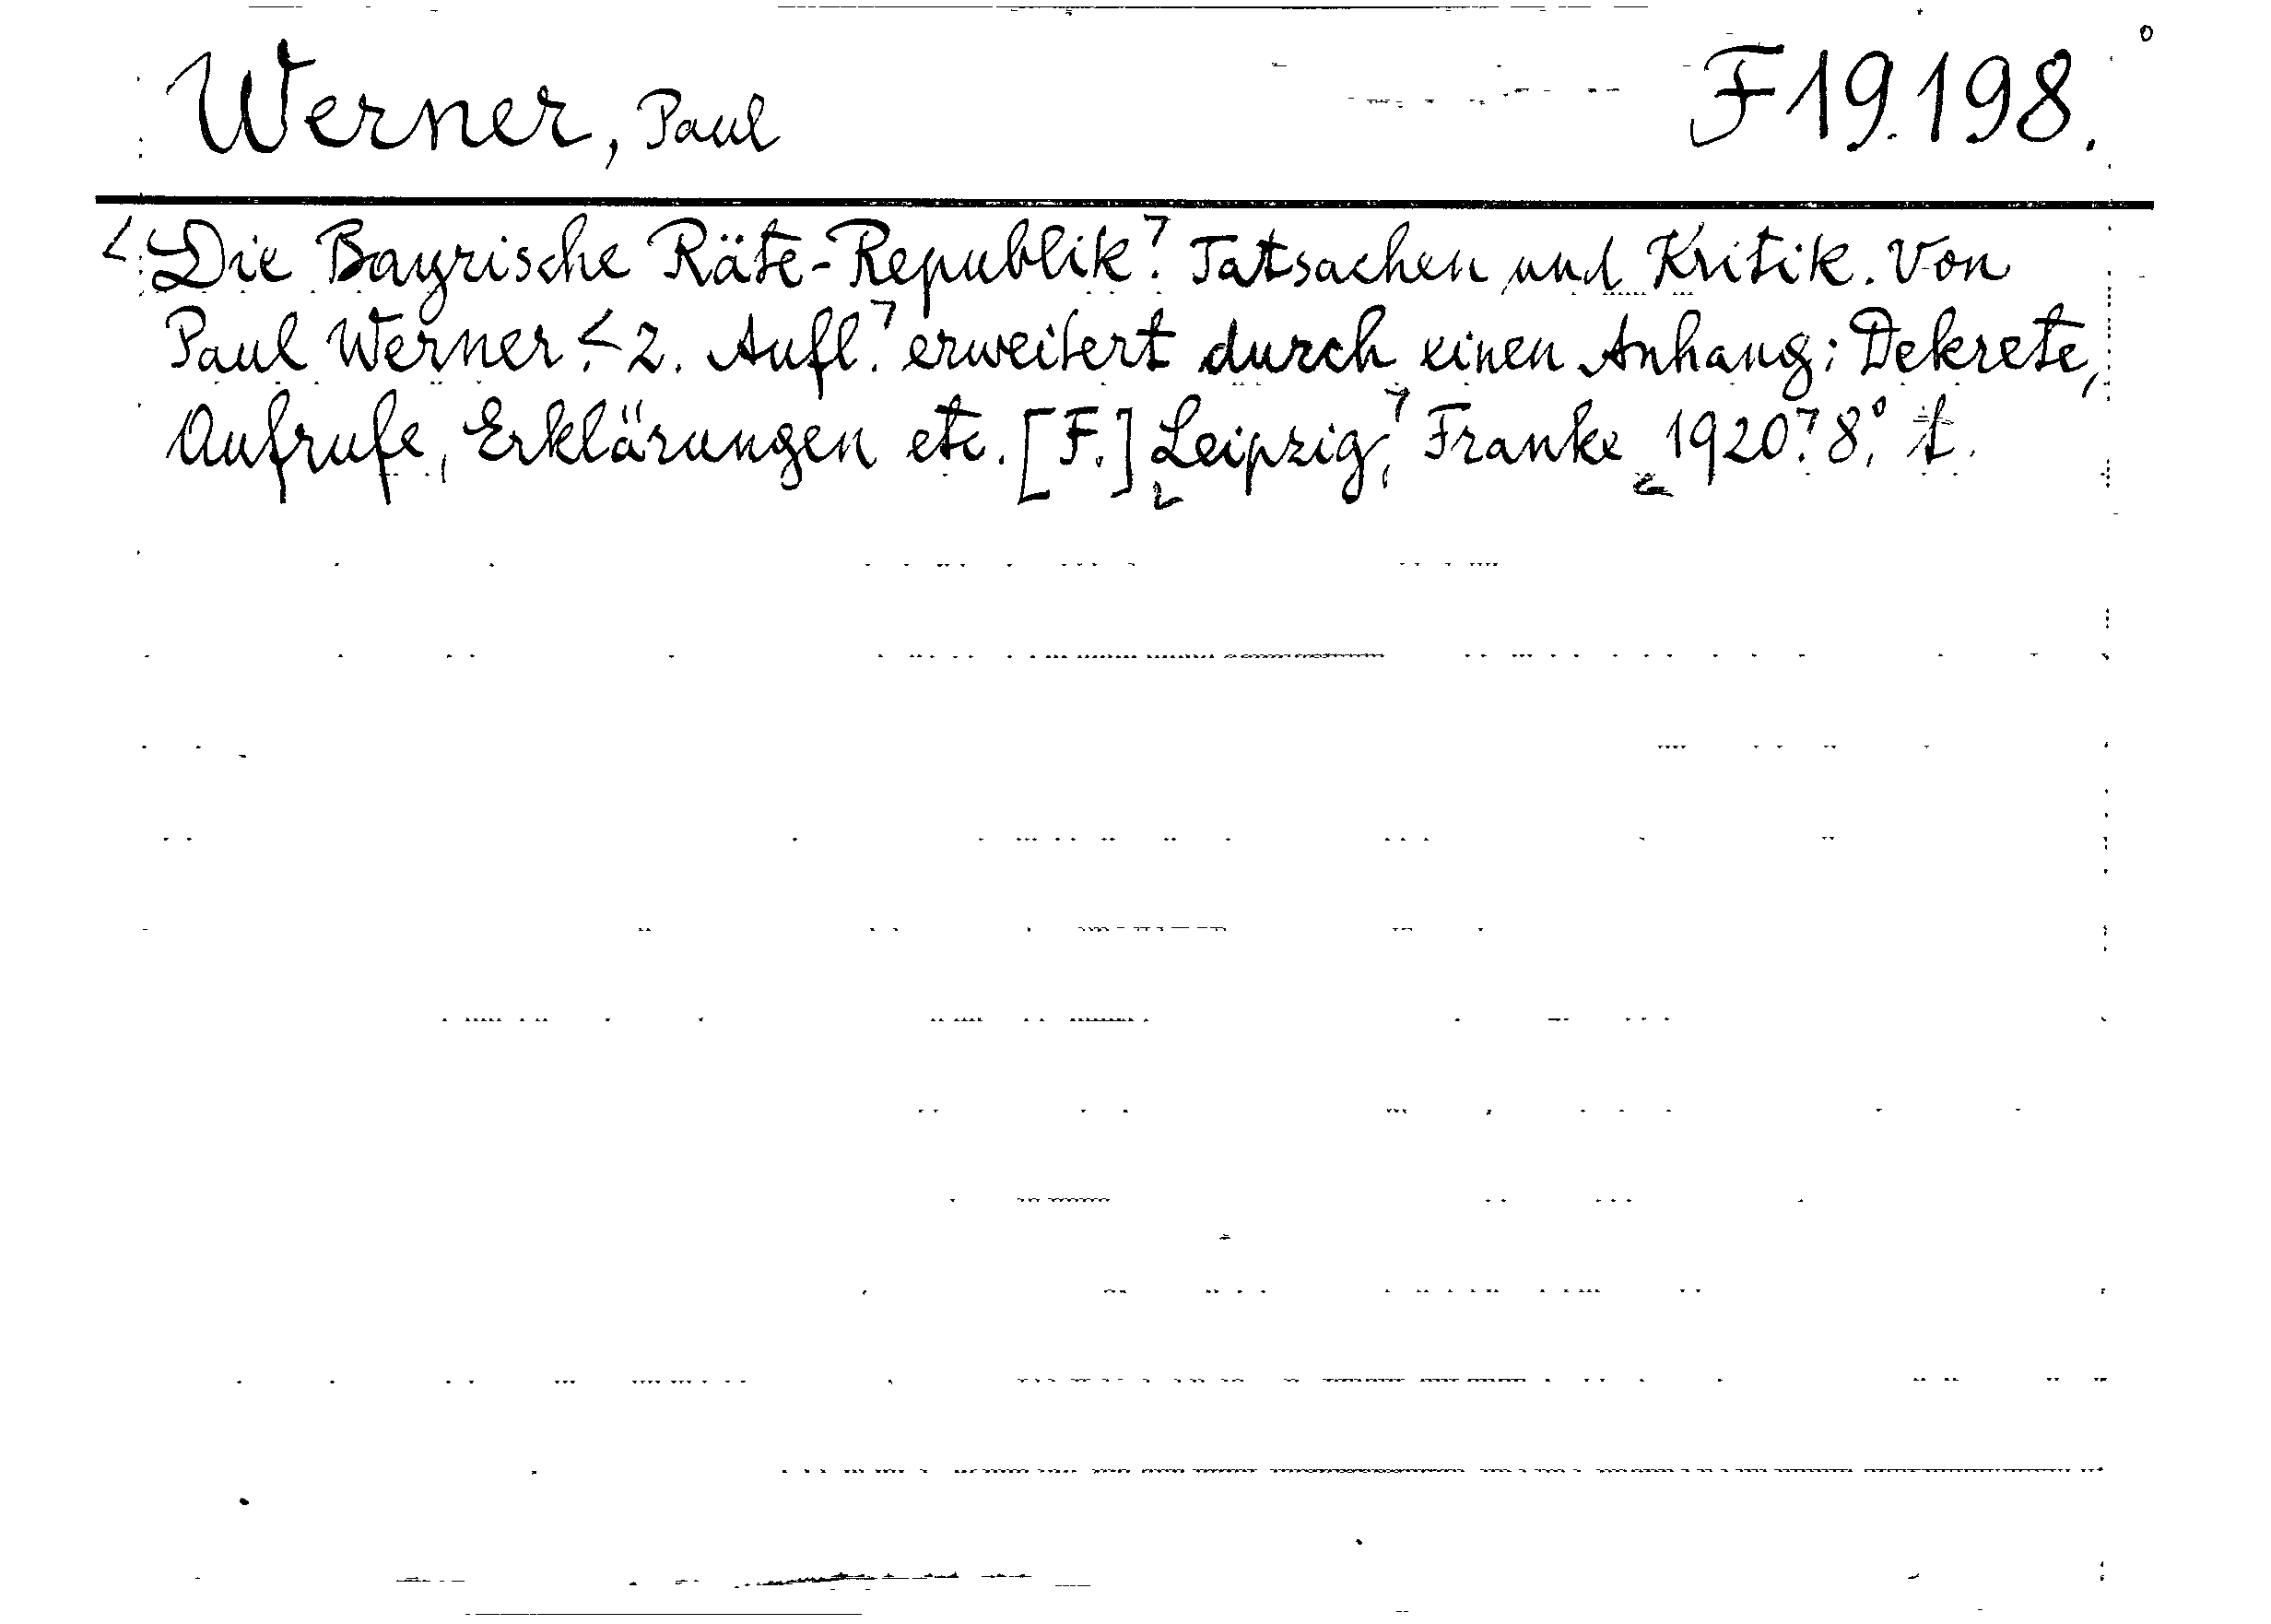 Werner, Paul F 19.198.
<Die Bayrische Räte-Republik.> Tatsachen und Kritik. Von
Paul Werner. <2. Aufl.> erweitert durch einen Anhang: Dekrete,
Aufrufe, Erklärungen etc. [F.] Leipzig, Franke 1920. 8°.